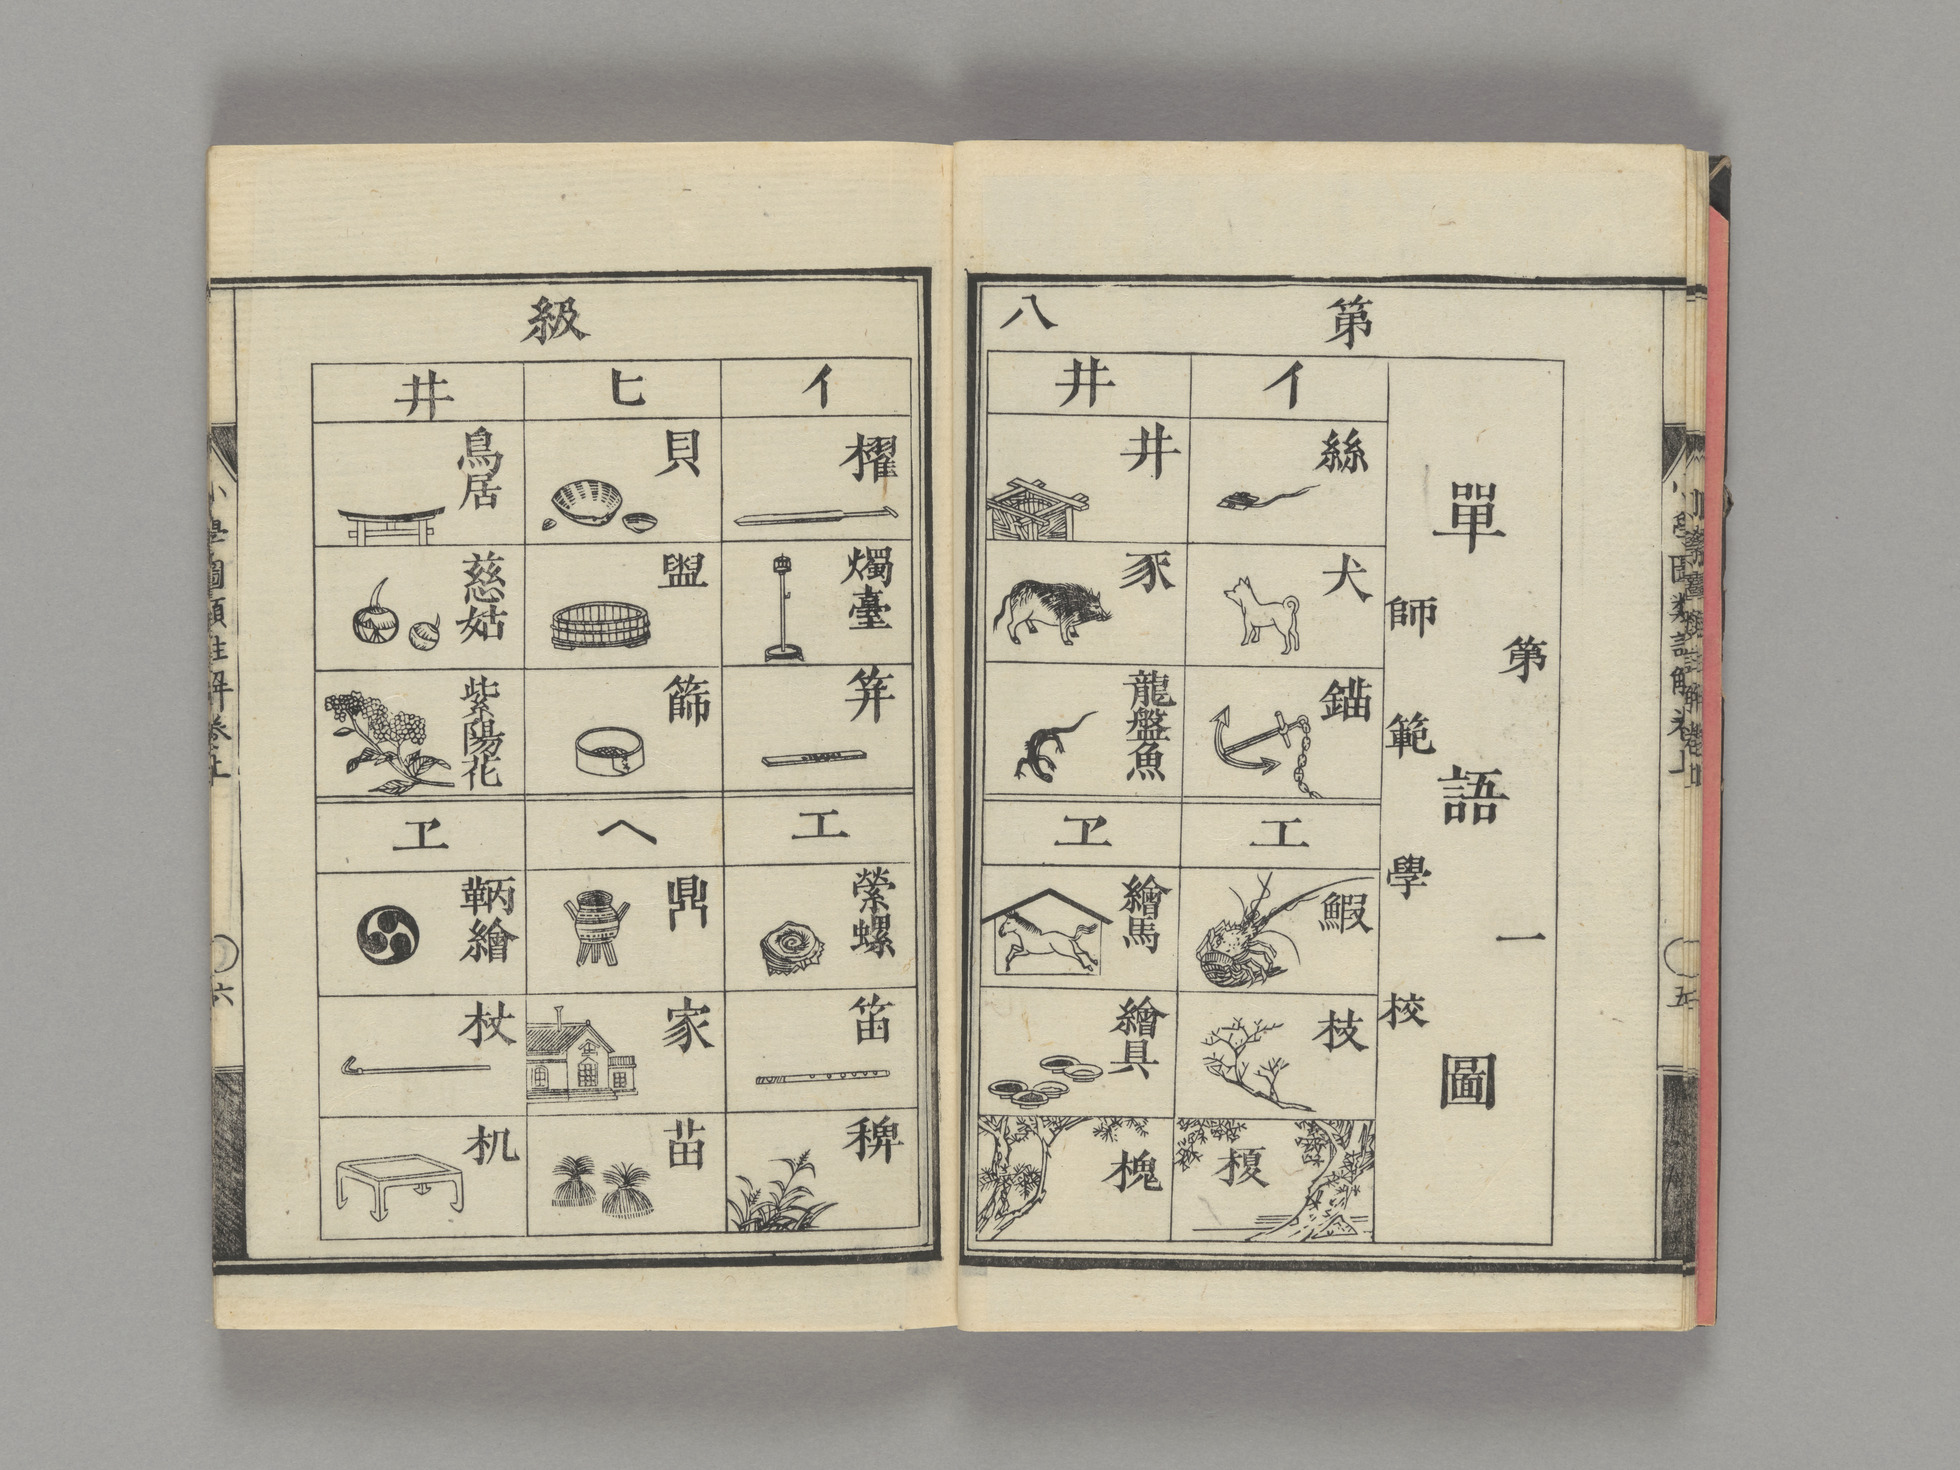 第
八
第一
單語圖
師範學校
イ
絲
犬
錨
エ
鰕
枝
榎
井
井
豕
龍盤魚
ヱ
繪馬
繪具
槐
級
イ
櫂
燭臺
筭
エ
榮螺
笛
稗
ヒ
貝
盥
篩
ヘ
鼎
家
苗
井
鳥居
慈姑
紫陽花
ヱ
鞆繪
杖
机
六